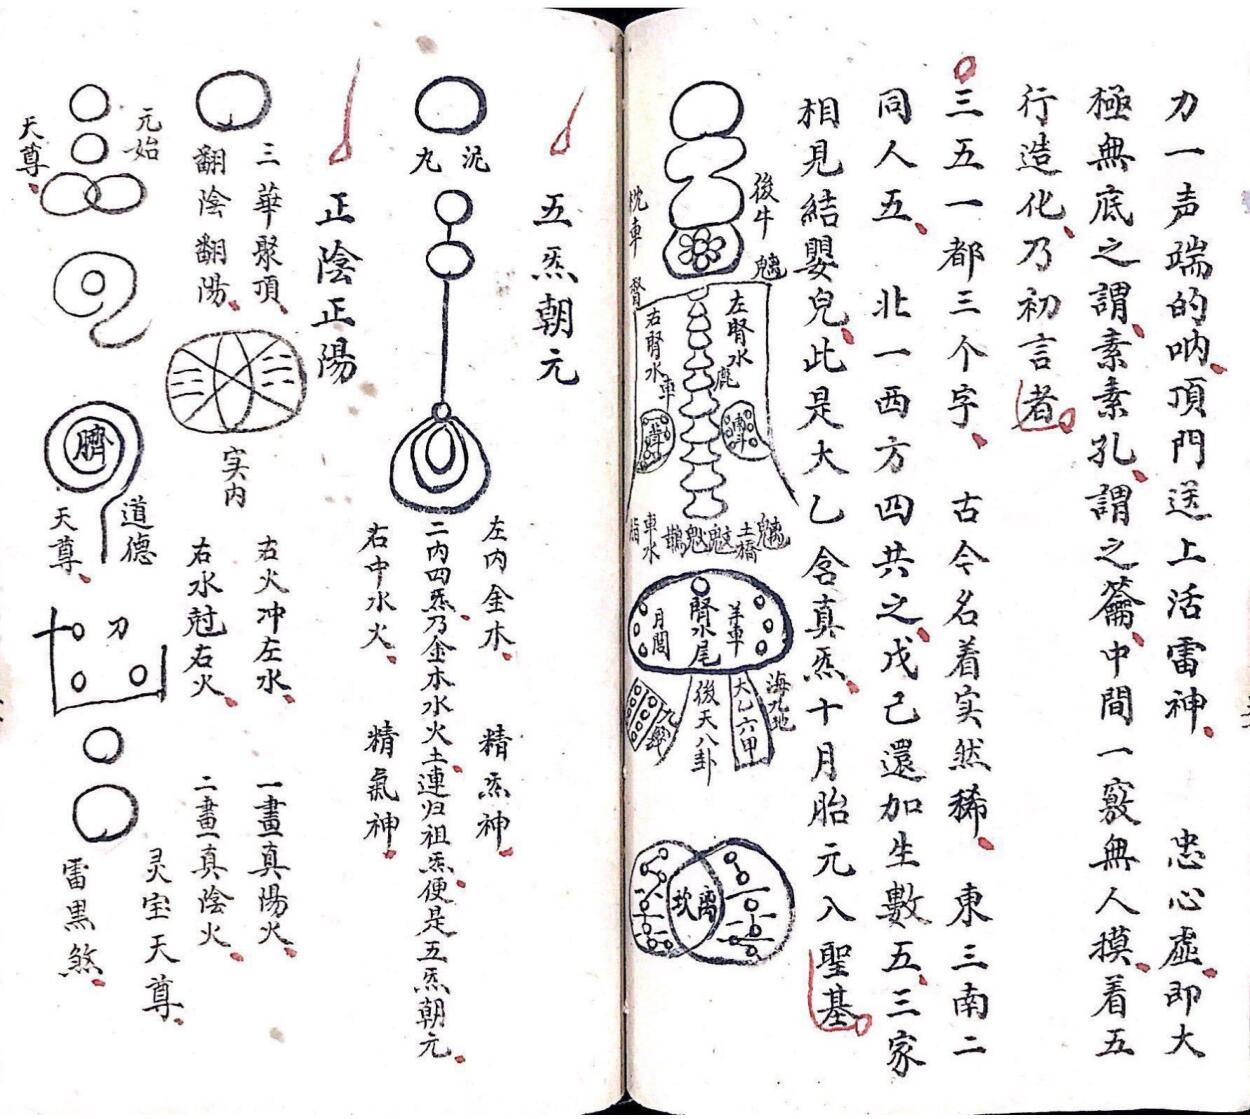 力一声端的吶頂門送上活雷神 忠心虛即大
極無底之謂素素孔謂之籥中間一竅無人摸着五
行造化乃初言者
三五一都三个字 古今名着实然稀 東三南二
同人五 北一西方四共之戊己還加生數五三家
相見結嬰兒此是大乙含真炁十月胎元入聖基
後牛
枕車
左腎水
右腎水
鹿
車
車水
土橋
腎水尾
羊車
月閣
海九地
大乙六甲
後天八卦
离
坎
五炁朝元
泥
九
左內金木 精炁神
二內四炁乃金木水火土連归祖炁便是五炁朝元
右中水火 精氣神
正陰正陽
三華聚頂
翻陰翻陽
实内
右火冲左水 一畫真陽火
右水尅右火 二畫真陰火
元始
天尊
臍
道德
天尊
刀
灵宝天尊
雷黑煞